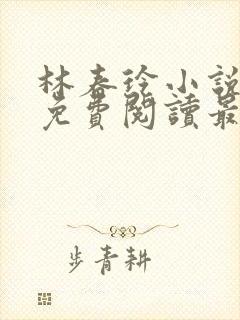 林春徐小說
免費閱讀最
步青耕